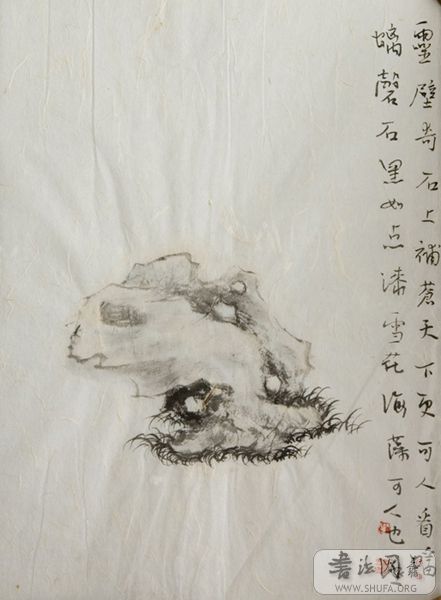 靈璧奇石上補蒼天下可人
磬石黑如点漆雪花海藻可人也
書法网
WWW.SHUFA.ORG